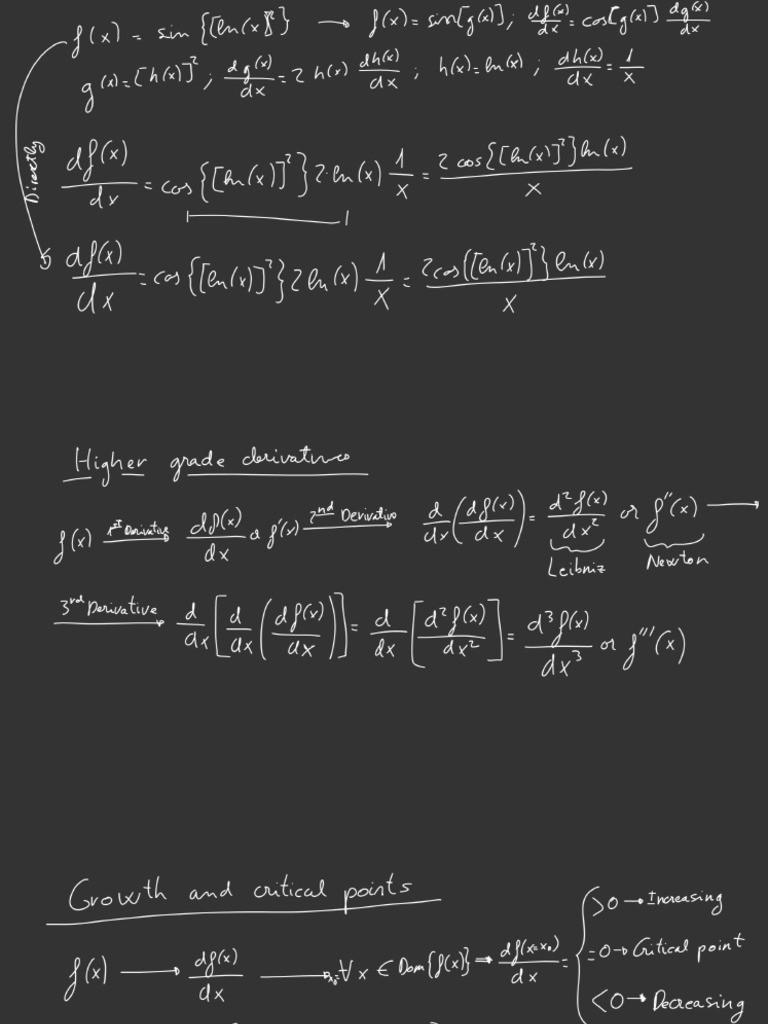 f(x) = sin{[ln(x)]²} → f(x) = sin[g(x)]; df(x)/dx = cos[g(x)] dg(x)/dx
g(x) = [h(x)]²; dg(x)/dx = 2 h(x) dh(x)/dx; h(x) = ln(x); dh(x)/dx = 1/x
df(x)/dx = cos{[ln(x)]²} 2·ln(x) 1/x = 2 cos{[ln(x)]²} ln(x)/x
Directly
df(x)/dx = cos{[ln(x)]²} 2 ln(x) 1/x = 2cos{[ln(x)]²} ln(x)/x
Higher grade derivatives
f(x) 1st Derivative → df(x)/dx or f'(x) 2nd Derivative → d/dx (df(x)/dx) = d²f(x)/dx² or f''(x) →
Leibniz Newton
3rd Derivative → d/dx [d/dx (df(x)/dx)] = d/dx [d²f(x)/dx²] = d³f(x)/dx³ or f'''(x)
Growth and critical points
>0 → Increasing
f(x) → df(x)/dx → x₀ ∀ x ∈ Dom{f(x)} → df(x=x₀)/dx = =0 → Critical point
<0 → Decreasing